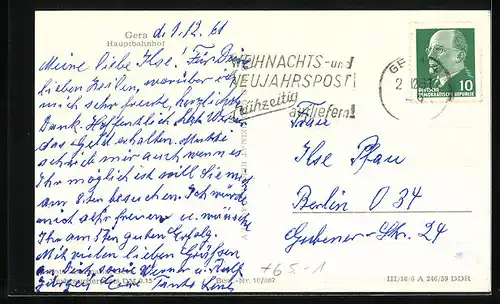 Gera
Hauptbahnhof
d. 1.12.61
Meine liebe Ilse! Für Deine
lieben Zeilen, worüber ich
mich sehr freute, herzlichen
Dank. Hoffentlich hat
das Geld erhalten. Mutti
schrieb mir auch wenn es
Ihr möglich ist will Sie mich
am 8ten besuchen. Ich würde
mich sehr freuen u. wünsche
Ihr am 5ten guten Erfolg.
Mit vielen lieben Grüßen
an Dich, sowie Werner u.
Eure Tante
WEIHNACHTS- und
NEUJAHRSPOST
frühzeitig
aufliefern!
GE
2 12 61
10
DEUTSCHE
DEMOKRATISCHE REPUBLIK
Frau
Ilse Pfau
Berlin O 34
Gubener-Str. 24
+65.-1
Best.-Nr. 10/587
III/18/6 A 246/59 DDR